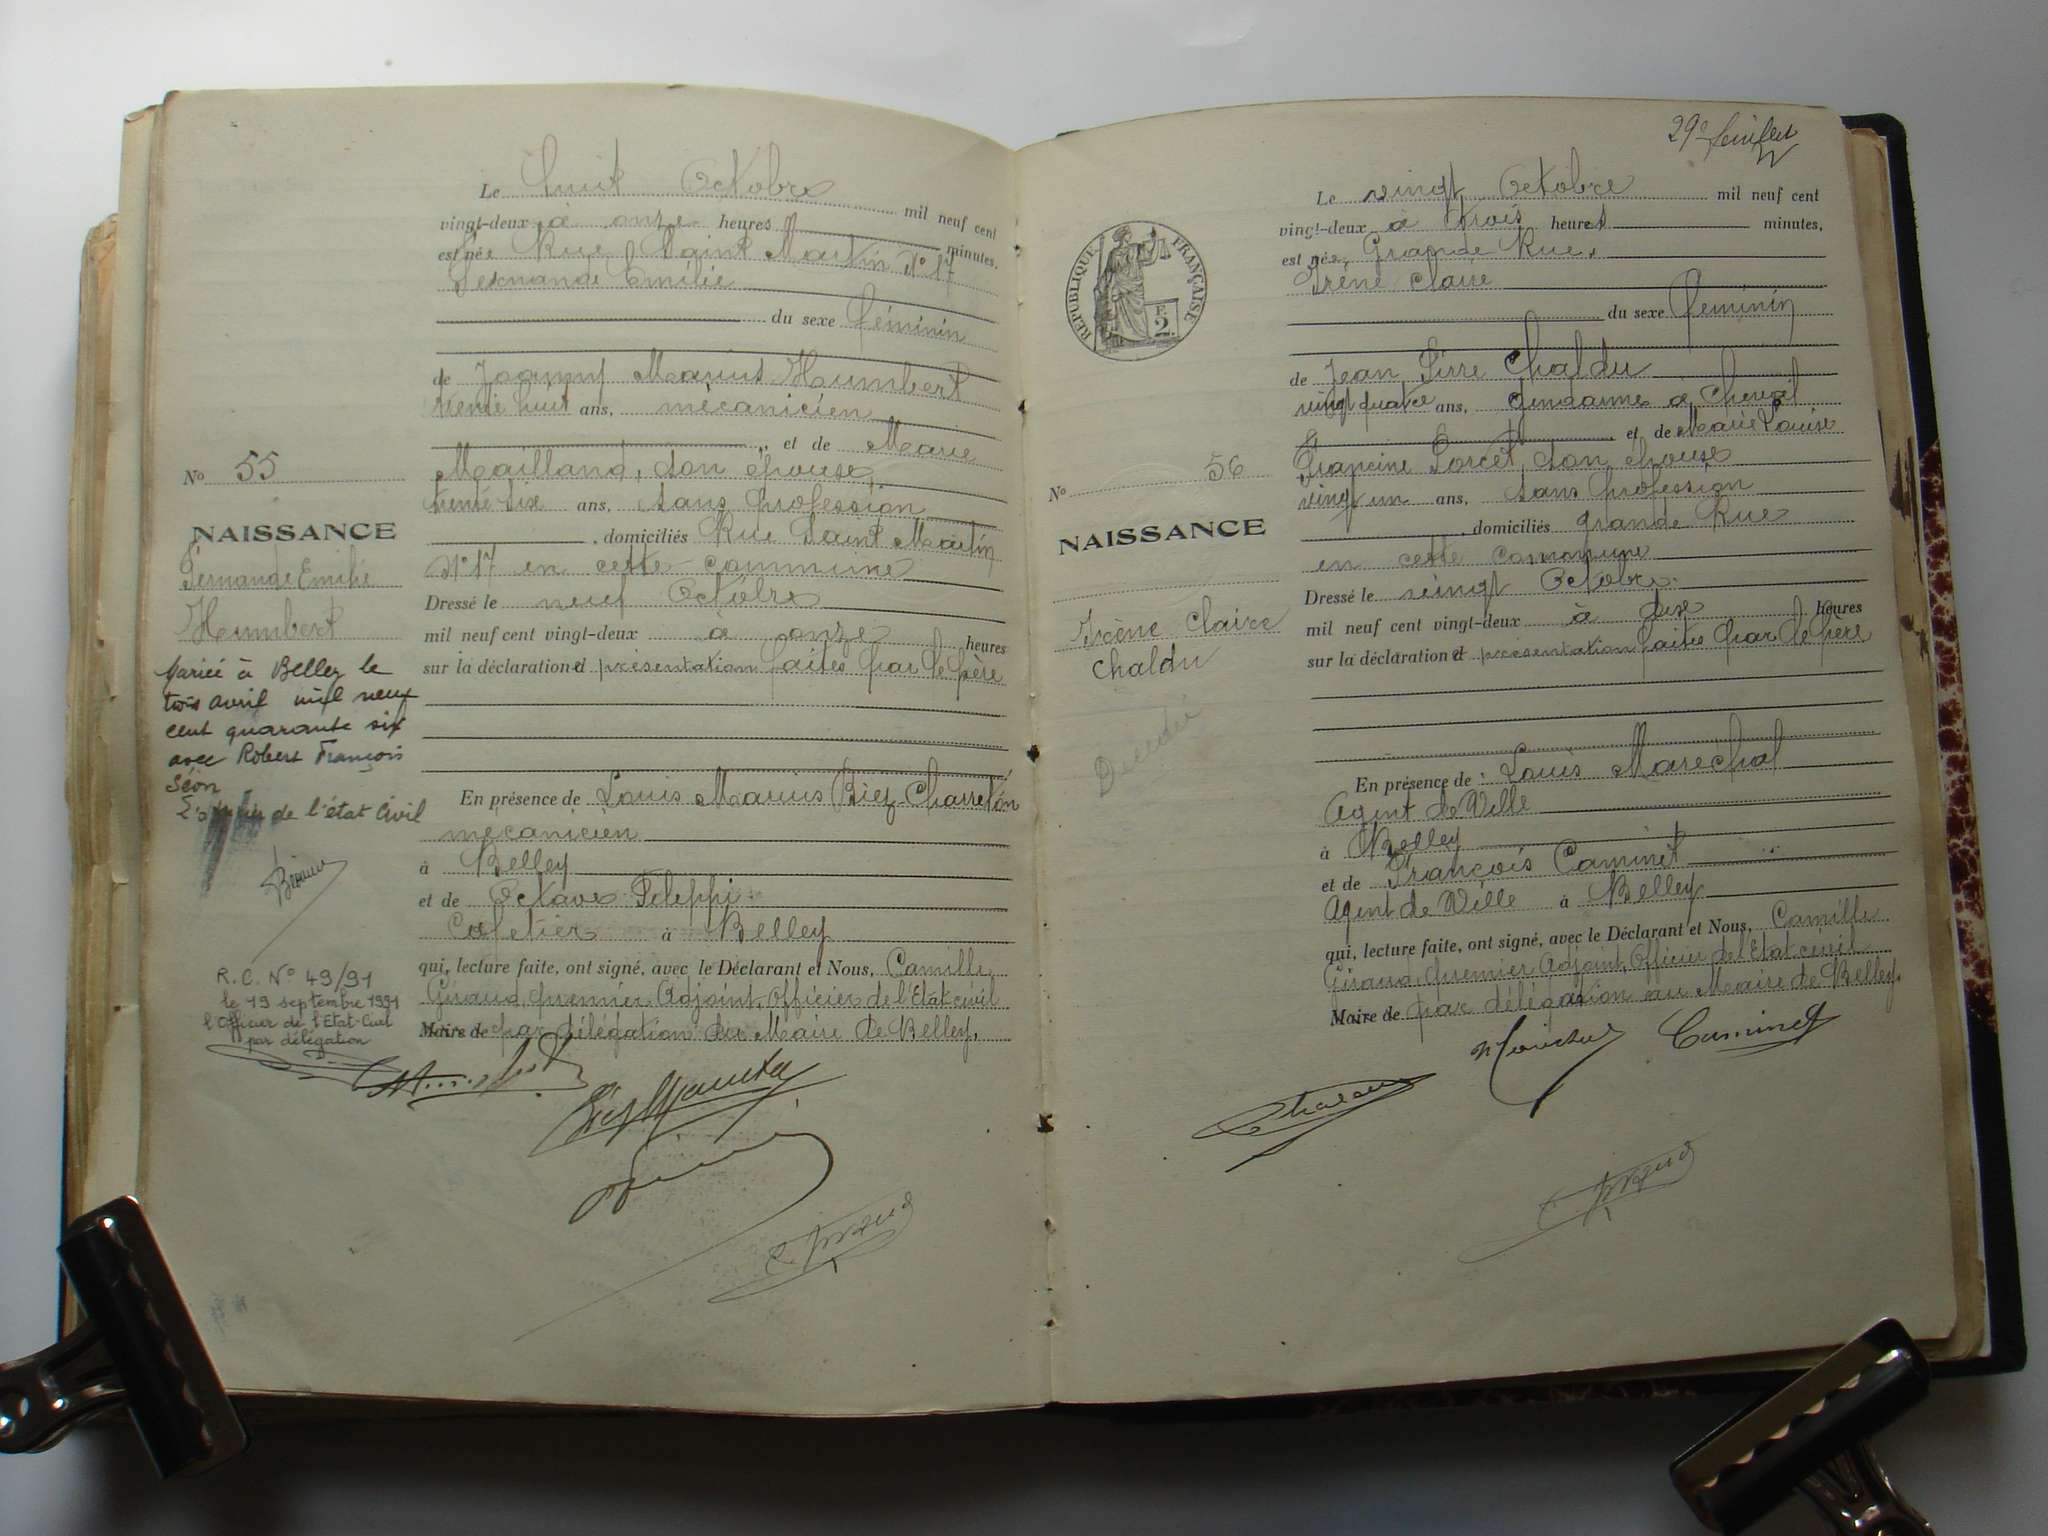 Le huit Octobre mil neuf cent
vingt-deux à onze heures minutes,
est née Rue Saint Martin N° 17
Fernande Emilie
du sexe féminin
de Joanny Marius Humbert
trente huit ans, mécanicien
, et de Marie
Mailland, son épouse,
trente six ans, sans profession
, domiciliés Rue Saint Martin
N° 17 en cette commune
Dressé le neuf Octobre
mil neuf cent vingt-deux à onze heures
sur la déclaration et présentation faites par le père
En présence de Louis Marius Biez-Charreton
mécanicien
à Belley
et de Octave Feleppi
Cafetier à Belley
qui, lecture faite, ont signé, avec le Déclarant et Nous, Camille
Giraud, premier Adjoint, Officier de l'Etat-civil
Maire de par délégation du Maire de Belley.
N° 55
NAISSANCE
Fernande Emilie
Humbert
Mariée à Belley le
trois avril mil neuf
cent quarante six
avec Robert François
Séon
L'officier de l'état Civil
R.C. N° 49/91
le 19 septembre 1991
l'Officier de l'Etat-Civil
par délégation
29e feuillet
Le vingt Octobre mil neuf cent
vingt-deux à trois heures minutes,
est née, Grande Rue,
Irène Claire
du sexe féminin
de Jean Pirre Chaldu
vingt quatre ans, gendarme à cheval
, et de Marie Louise
Francine Lorcet, son épouse
vingt un ans, sans profession
, domiciliés grande Rue
en cette commune
Dressé le vingt Octobre
mil neuf cent vingt-deux à dix heures
sur la déclaration et présentation faite par le père
En présence de Louis Maréchal
Agent de Ville
à Belley
et de François Caminet
Agent de Ville à Belley
qui, lecture faite, ont signé, avec le Déclarant et Nous, Camille
Giraud, premier Adjoint, Officier de l'Etat civil
Maire de par délégation du Maire de Belley.
Caminet
RÉPUBLIQUE FRANÇAISE
F.
2
N° 56
NAISSANCE
Irène Claire
Chaldu
Décédée